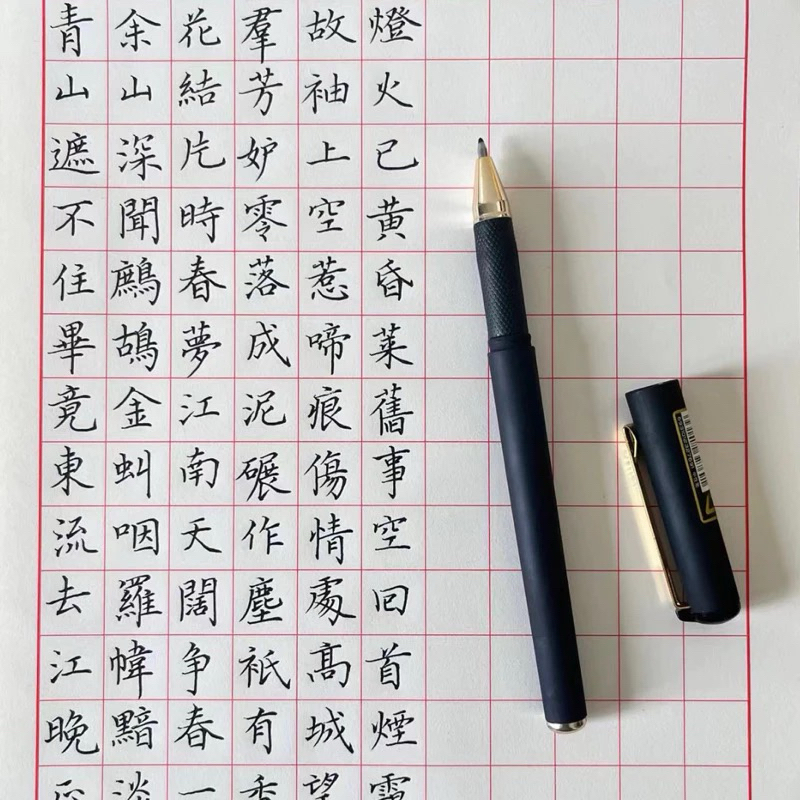 青山遮不住畢竟東流去江晚正
余山深聞鷓鴣金虯咽羅幃黯淡
花結片時春夢江南天闊争春一
羣芳妒零落成泥碾作塵衹有香
故袖上空惹啼痕傷情處髙城望
燈火已黄昏萊舊事空回首煙